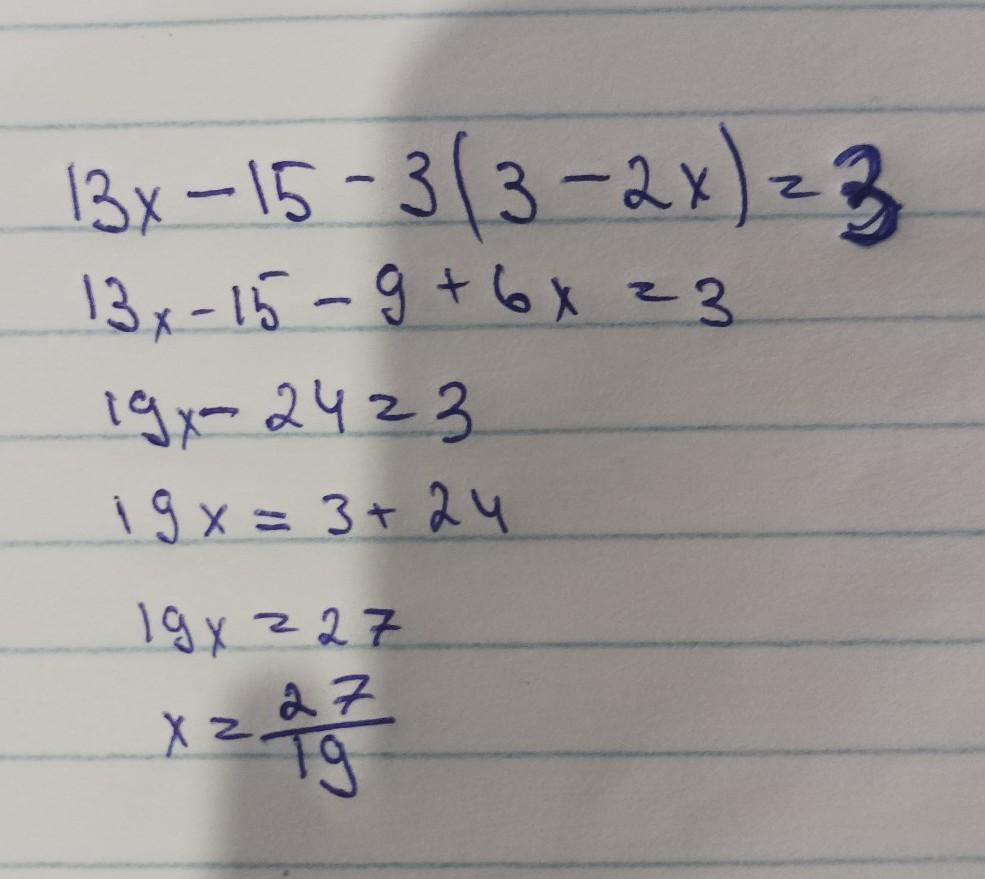 13x - 15 - 3(3 - 2x) = 3
13x - 15 - 9 + 6x = 3
19x - 24 = 3
19x = 3 + 24
19x = 27
x = 27/19